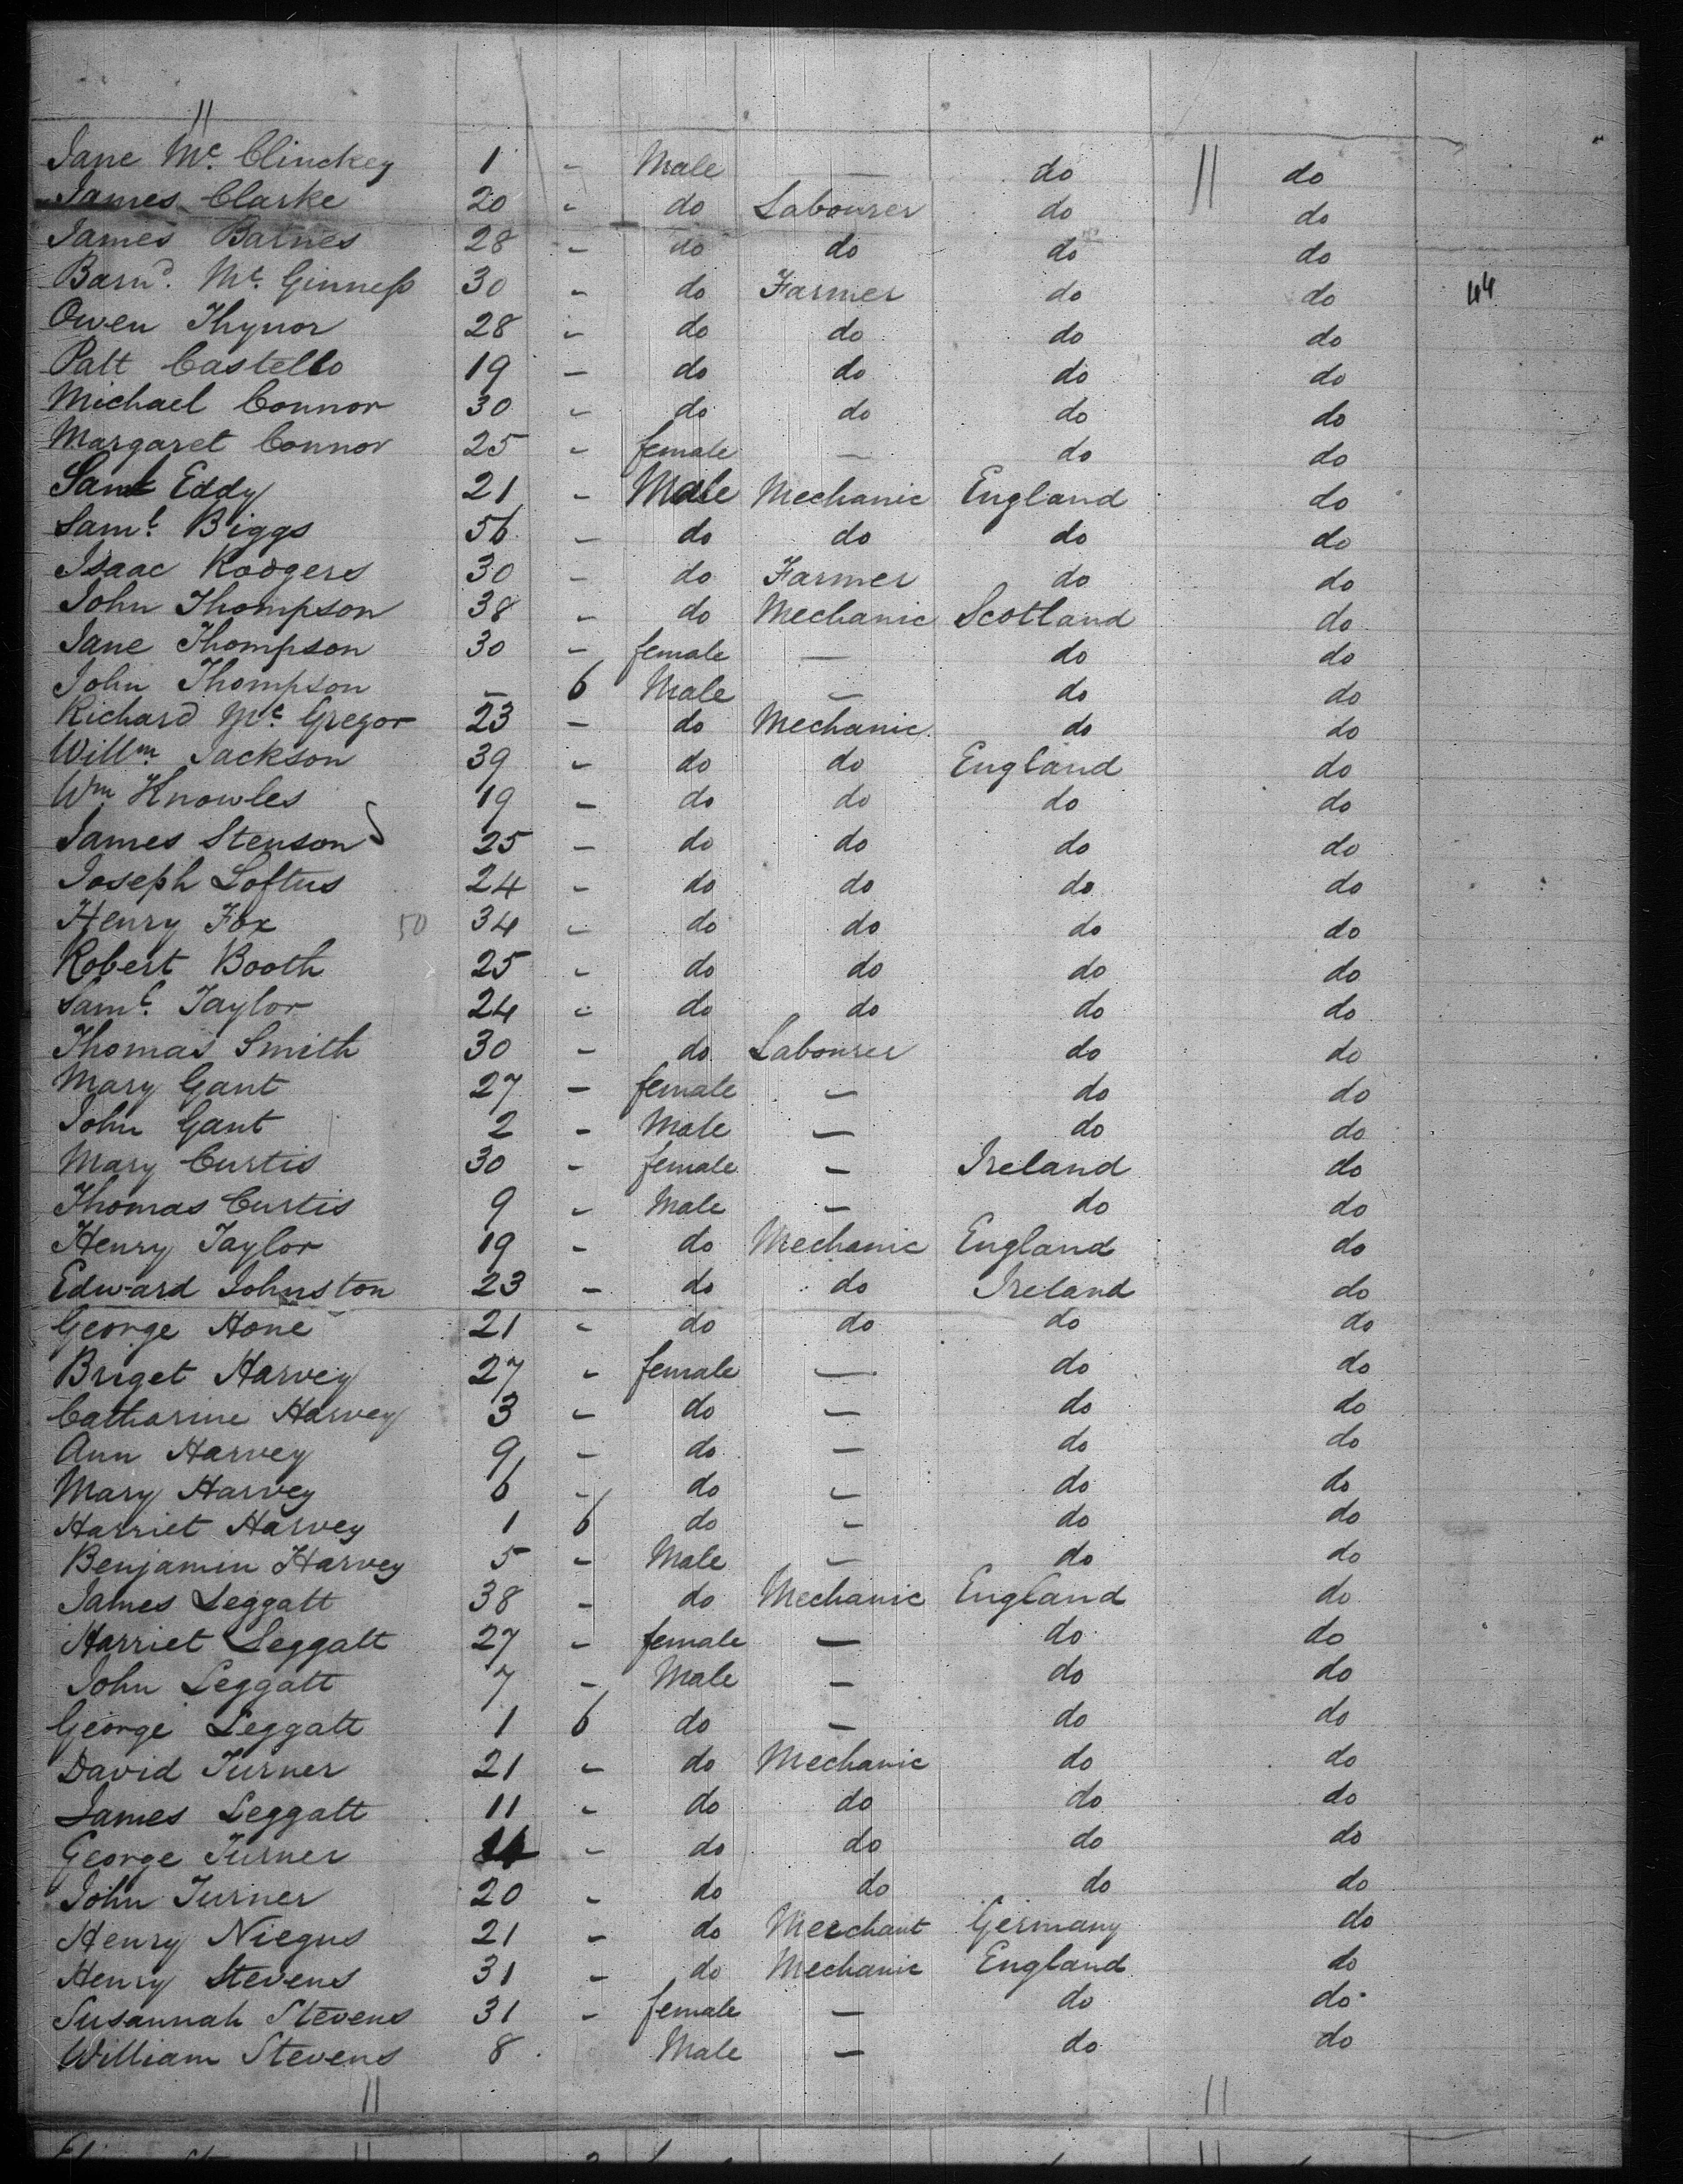 Jane Mc. Clinckey 1 - Male — do do
James Clarke 20 - do Labourer do do
James Barnes 28 - do do do do
Barnd. Mc. Ginness 30 - do Farmer do do 44
Owen Thynor 28 - do do do do
Patt Castello 19 - do do do do
Michael Connor 30 - do do do do
Margaret Connor 25 - female — do do
Saml Eddy 21 - Male Mechanic England do
Saml. Biggs 56 - do do do do
Isaac Rodgers 30 - do Farmer do do
John Thompson 38 - do Mechanic Scotland do
Jane Thompson 30 - female — do do
John Thompson - 6 Male — do do
Richard Mc. Gregor 23 - do Mechanic do do
Willm. Jackson 39 - do do England do
Wm Knowles 19 - do do do do
James Stenson 25 - do do do do
Joseph Loftus 24 - do do do do
Henry Fox 50 34 - do do do do
Robert Booth 25 - do do do do
Saml. Taylor 24 - do do do do
Thomas Smith 30 - do Labourer do do
Mary Gant 27 - female — do do
John Gant 2 - Male — do do
Mary Curtis 30 - female — Ireland do
Thomas Curtis 9 - Male — do do
Henry Taylor 19 - do Mechanic England do
Edward Johnston 23 - do do Ireland do
George Hone 21 - do do do do
Briget Harvey 27 - female — do do
Catharine Harvey 3 - do — do do
Ann Harvey 9 - do — do do
Mary Harvey 6 - do — do do
Harriet Harvey 1 6 do - do do
Benjamin Harvey 5 - Male — do do
James Leggatt 38 - do Mechanic England do
Harriet Leggatt 27 - female — do do
John Leggatt 7 - Male — do do
George Leggatt 1 6 do — do do
David Turner 21 - do Mechanic do do
James Leggatt 11 - do do do do
George Turner - do do do do
John Turner 20 - do do do do
Henry Niegus 21 - do Merchant Germany do
Henry Stevens 31 - do Mechanic England do
Susannah Stevens 31 - female — do do
William Stevens 8 Male — do do